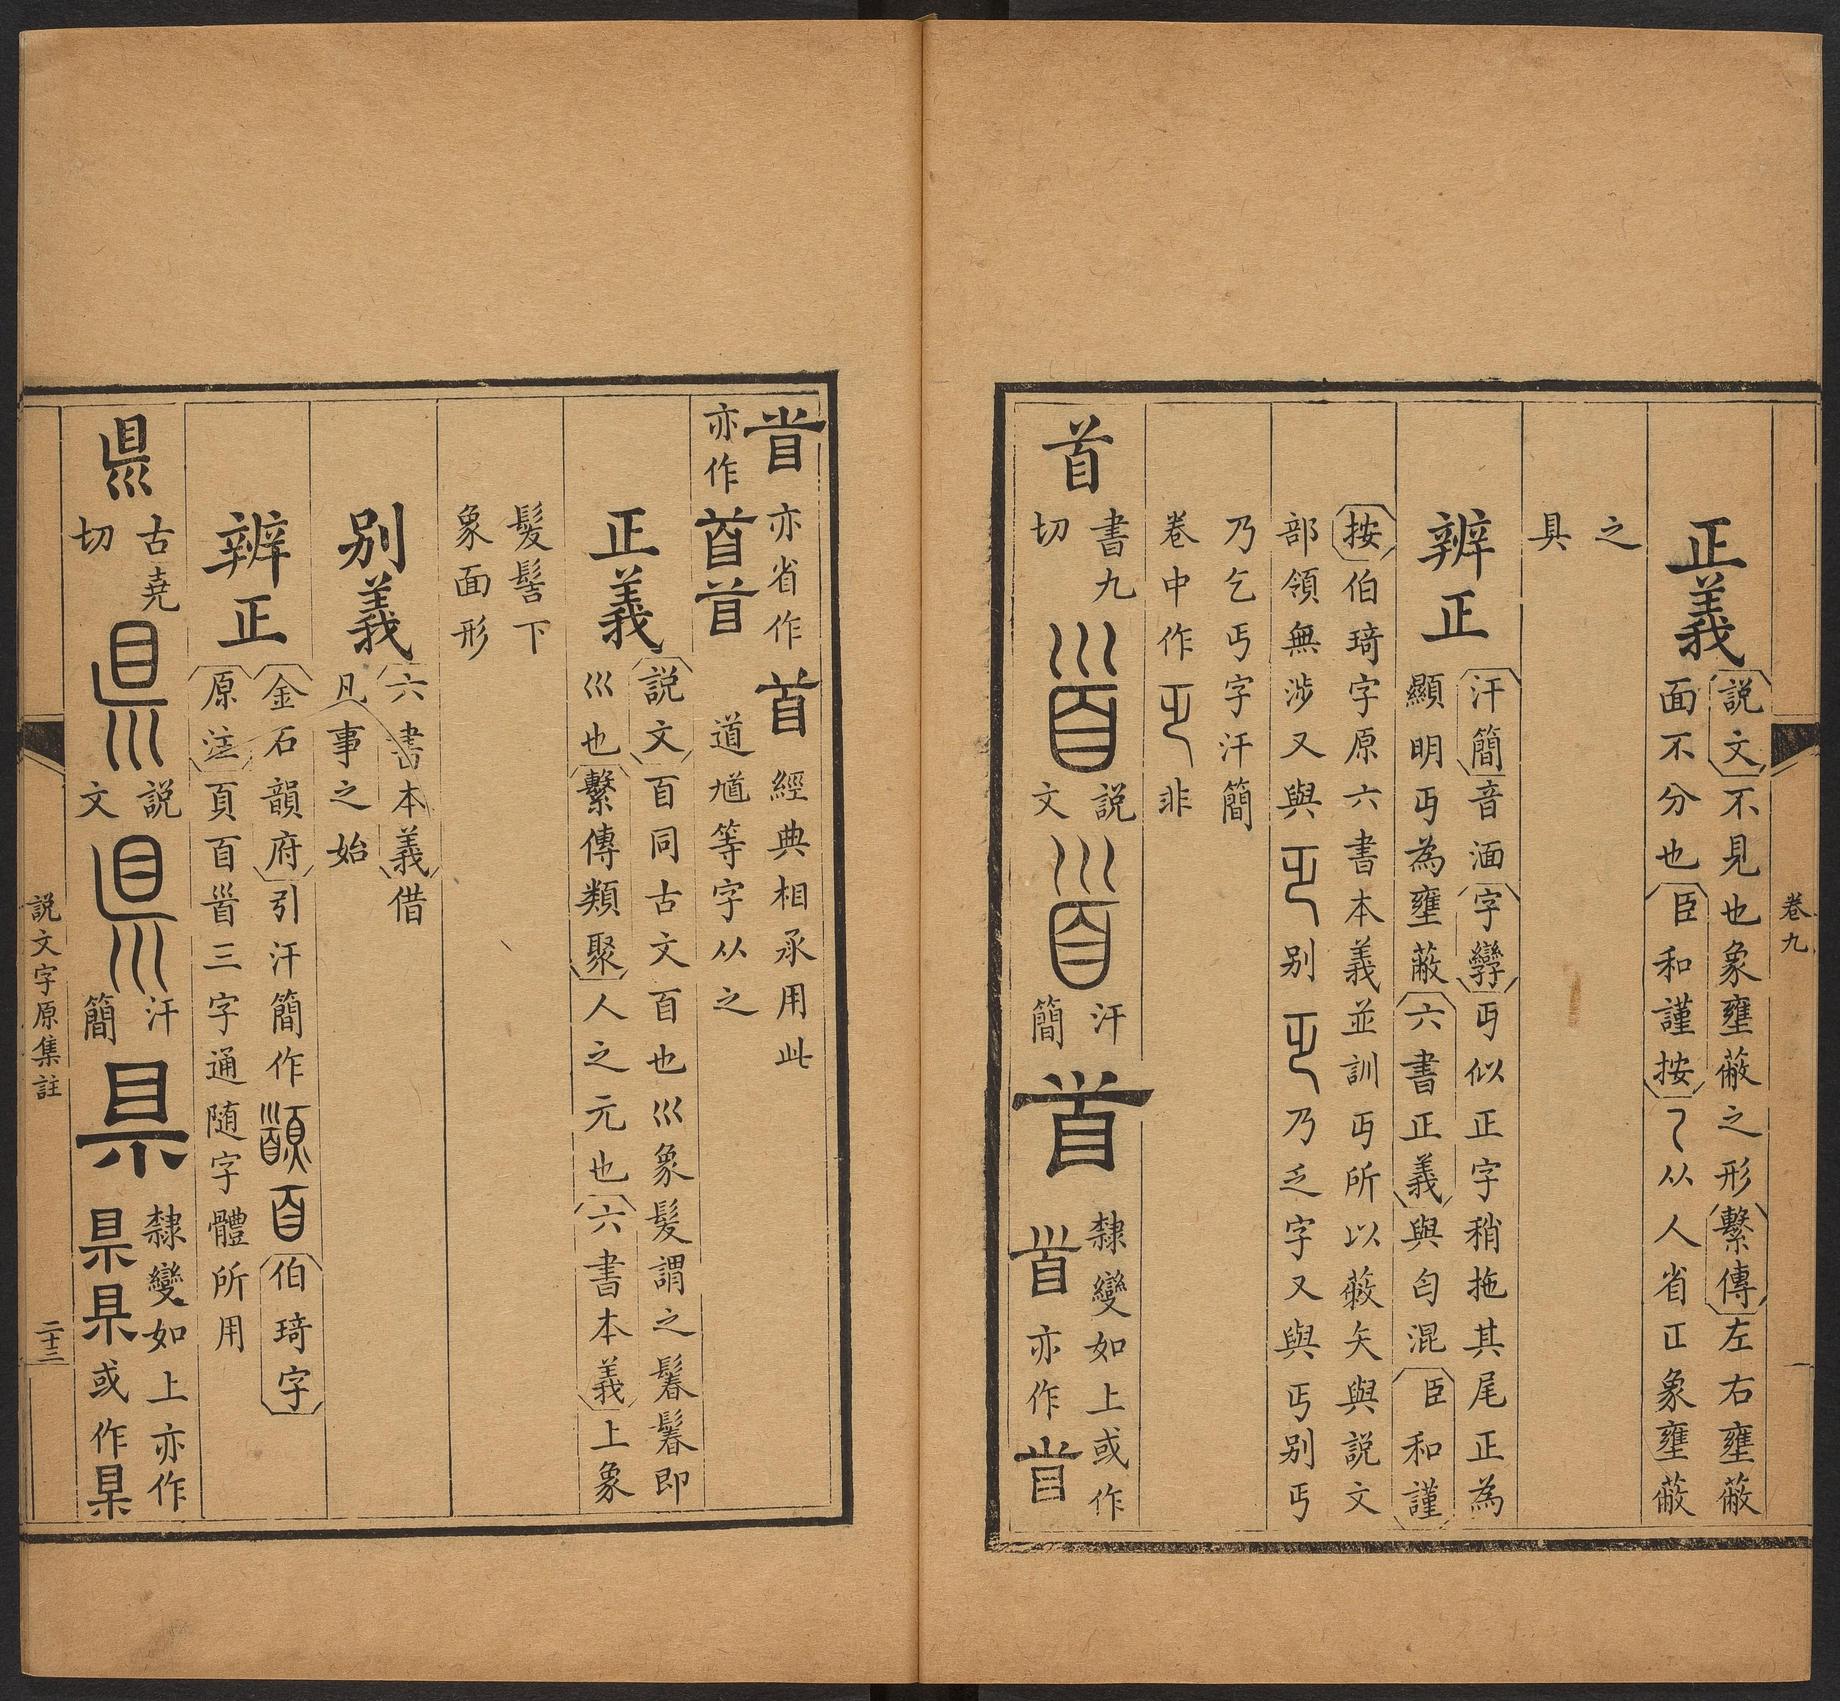 卷九
正義
說文不見也象壅蔽之形繫傳左右壅蔽
面不分也臣和謹按乁从人省𠃊象壅蔽
之
具
辨正
汗簡音湎字孿丏似正字稍拖其尾正為
顯明丏為壅蔽六書正義與匄混臣和謹
按伯琦字原六書本義並訓丏所以蔽矢與說文
部領無涉又與別乃乏字又與丐別丐
乃乞丐字汗簡
卷中作非
首
書九
切
說
文
汗
簡
首
隸變如上或作
𩠐亦作
亦省作首經典相承用此
亦作𦣻首道馗等字从之
正義
說文𦣻同古文𦣻也巛象髮謂之鬊鬊即
巛也繫傳類聚人之元也六書本義上象
髮髻下
象面形
別義
六書本義借
凡事之始
辨正
金石韻府引汗簡作𦣻伯琦字
原注頁𦣻𩠐三字通随字體所用
㥁
古堯
切
說
文
汗
簡
県
隸變如上亦作
或作
說文字原集註
二十三